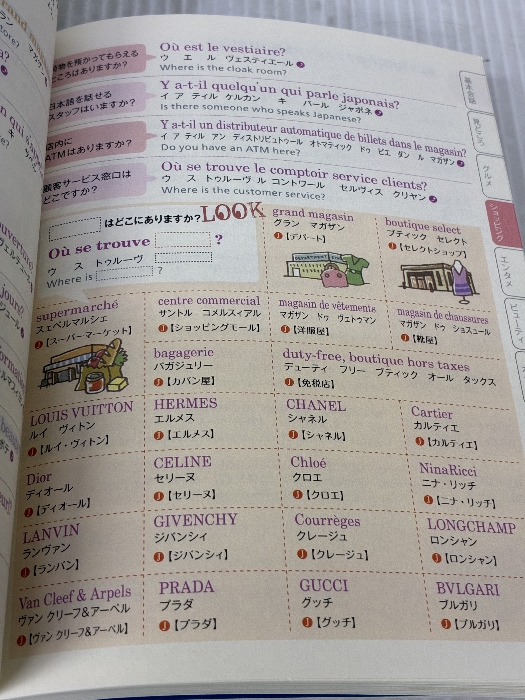 Où est le vestiaire?
ウ エ ル ヴェスティエール
Where is the cloak room?
物を預かってもらえる
ところはありますか?
Y a-t-il quelqu'un qui parle japonais?
イ ア ティル ケルカン キ パール ジャポネ
Is there someone who speaks Japanese?
日本語を話せる
スタッフはいますか?
Y a-t-il un distributeur automatique de billets dans le magasin?
イ ア ティル アン ディストリビュトゥール オトマティック ドゥ ビエ ダン ル マガザン
Do you have an ATM here?
店内に
ATMはありますか?
Où se trouve le comptoir service clients?
ウ ス トゥルーヴ ル コントワール セルヴィス クリヤン
Where is the customer service?
顧客サービス窓口は
どこですか?
はどこにありますか?
LOOK
Où se trouve ?
ウ ス トゥルーヴ
Where is ?
grand magasin
グラン マガザン
J【デパート】
boutique select
ブティック セレクト
J【セレクトショップ】
supermarché
スュペルマルシェ
J【スーパーマーケット】
centre commercial
サントル コメルスィアル
J【ショッピングモール】
magasin de vêtements
マガザン ドゥ ヴェトゥマン
J【洋服屋】
magasin de chaussures
マガザン ドゥ ショスュール
J【靴屋】
bagagerie
バガジュリー
J【カバン屋】
duty-free, boutique hors taxes
デューティ フリー ブティック オール タックス
J【免税店】
LOUIS VUITTON
ルイ ヴィトン
J【ルイ・ヴィトン】
HERMES
エルメス
J【エルメス】
CHANEL
シャネル
J【シャネル】
Cartier
カルティエ
J【カルティエ】
Dior
ディオール
J【ディオール】
CELINE
セリーヌ
J【セリーヌ】
Chloé
クロエ
J【クロエ】
NinaRicci
ニナ・リッチ
J【ニナ・リッチ】
LANVIN
ランヴァン
J【ランバン】
GIVENCHY
ジバンシィ
J【ジバンシィ】
Courrèges
クレージュ
J【クレージュ】
LONGCHAMP
ロンシャン
J【ロンシャン】
Van Cleef & Arpels
ヴァン クリーフ&アーペル
J【ヴァン クリーフ&アーペル】
PRADA
プラダ
J【プラダ】
GUCCI
グッチ
J【グッチ】
BVLGARI
ブルガリ
J【ブルガリ】
基本会話
見どころ
グルメ
ショッピング
エンタメ
ビューティ